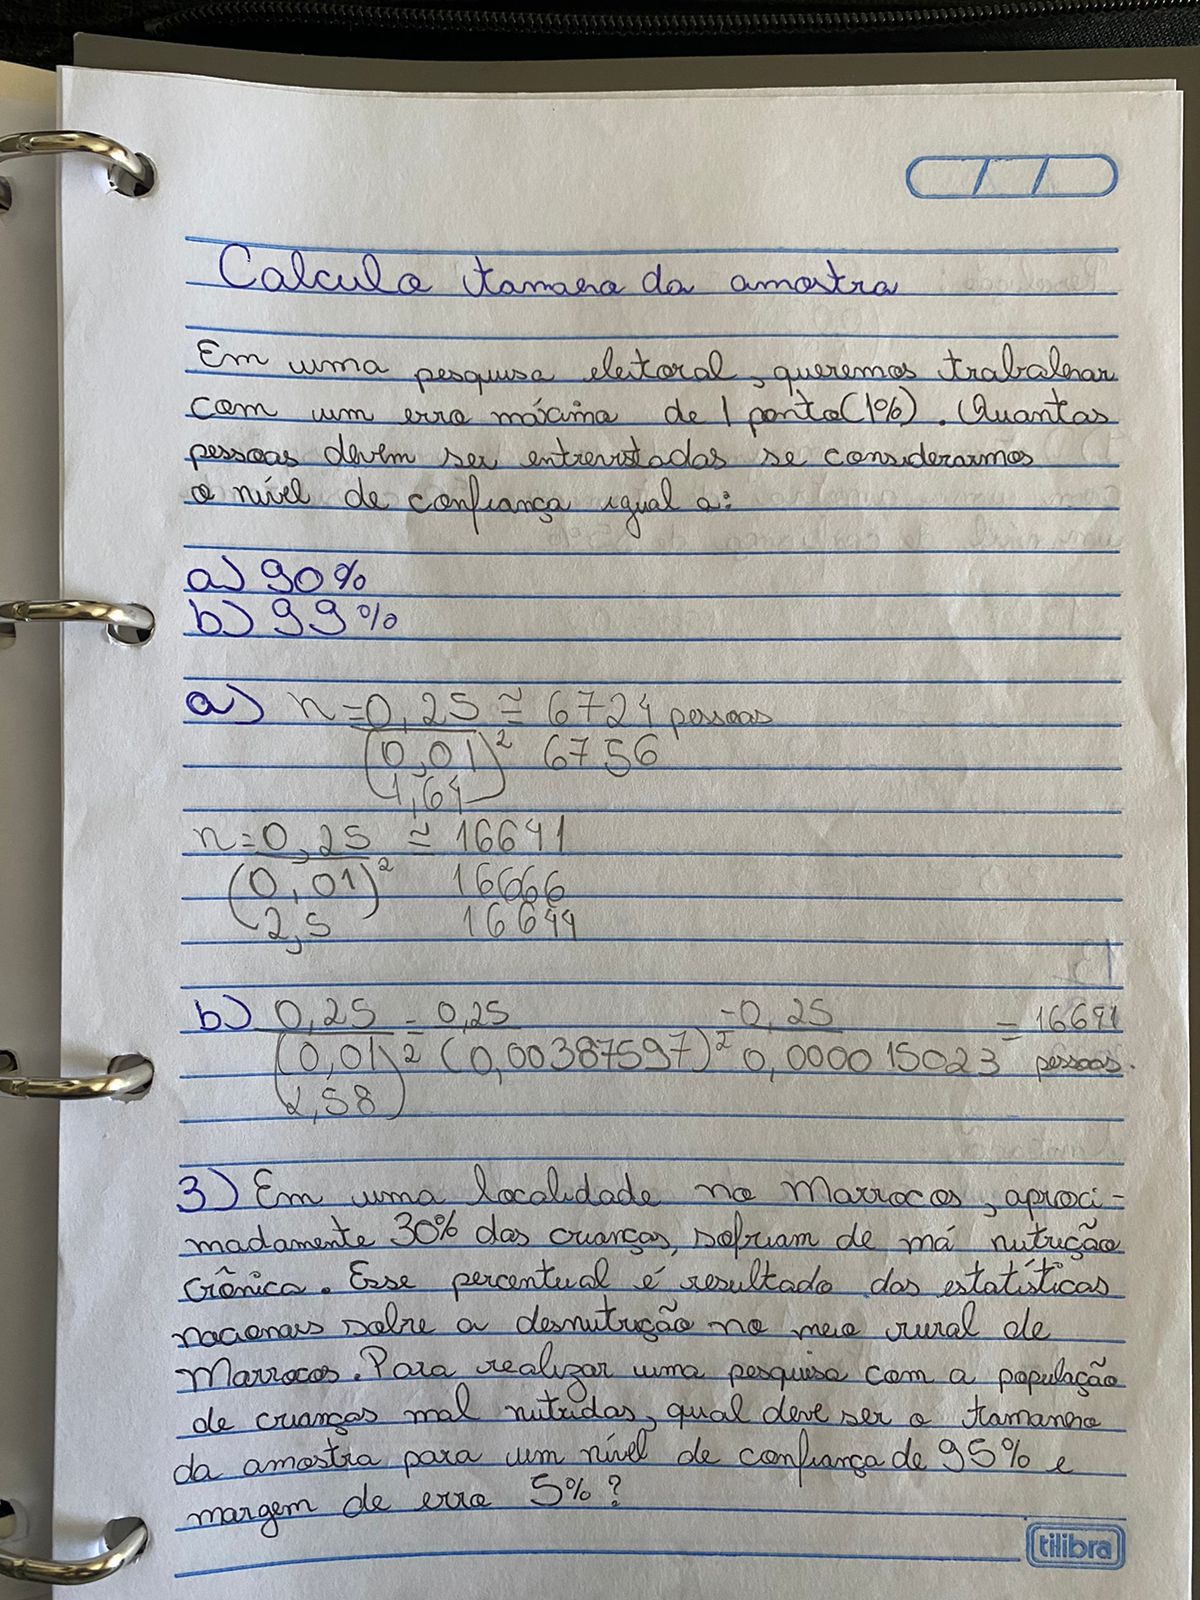 Calculo tamanho da amostra
Em uma pesquisa eleitoral, queremos trabalhar
com um erro máximo de 1 ponto (1%). Quantas
pessoas devem ser entrevistadas se considerarmos
o nível de confiança igual a:
a) 90%
b) 99%
a) n = 0,25 ≅ 6724 pessoas
(0,01)² 6756
1,64
n = 0,25 ≅ 16641
(0,01)² 16666
2,5 16644
b) 0,25 = 0,25 = 0,25 = 16641
(0,01)² (0,00387597)² 0,000015023 pessoas.
2,58
3) Em uma localidade no Marrocos, aproxi-
madamente 30% das crianças, sofriam de má nutrição
crônica. Esse percentual é resultado das estatísticas
nacionais sobre a desnutrição no meio rural de
Marrocos. Para realizar uma pesquisa com a população
de crianças mal nutridas, qual deve ser o tamanho
da amostra para um nível de confiança de 95% e
margem de erro 5%?
tilibra